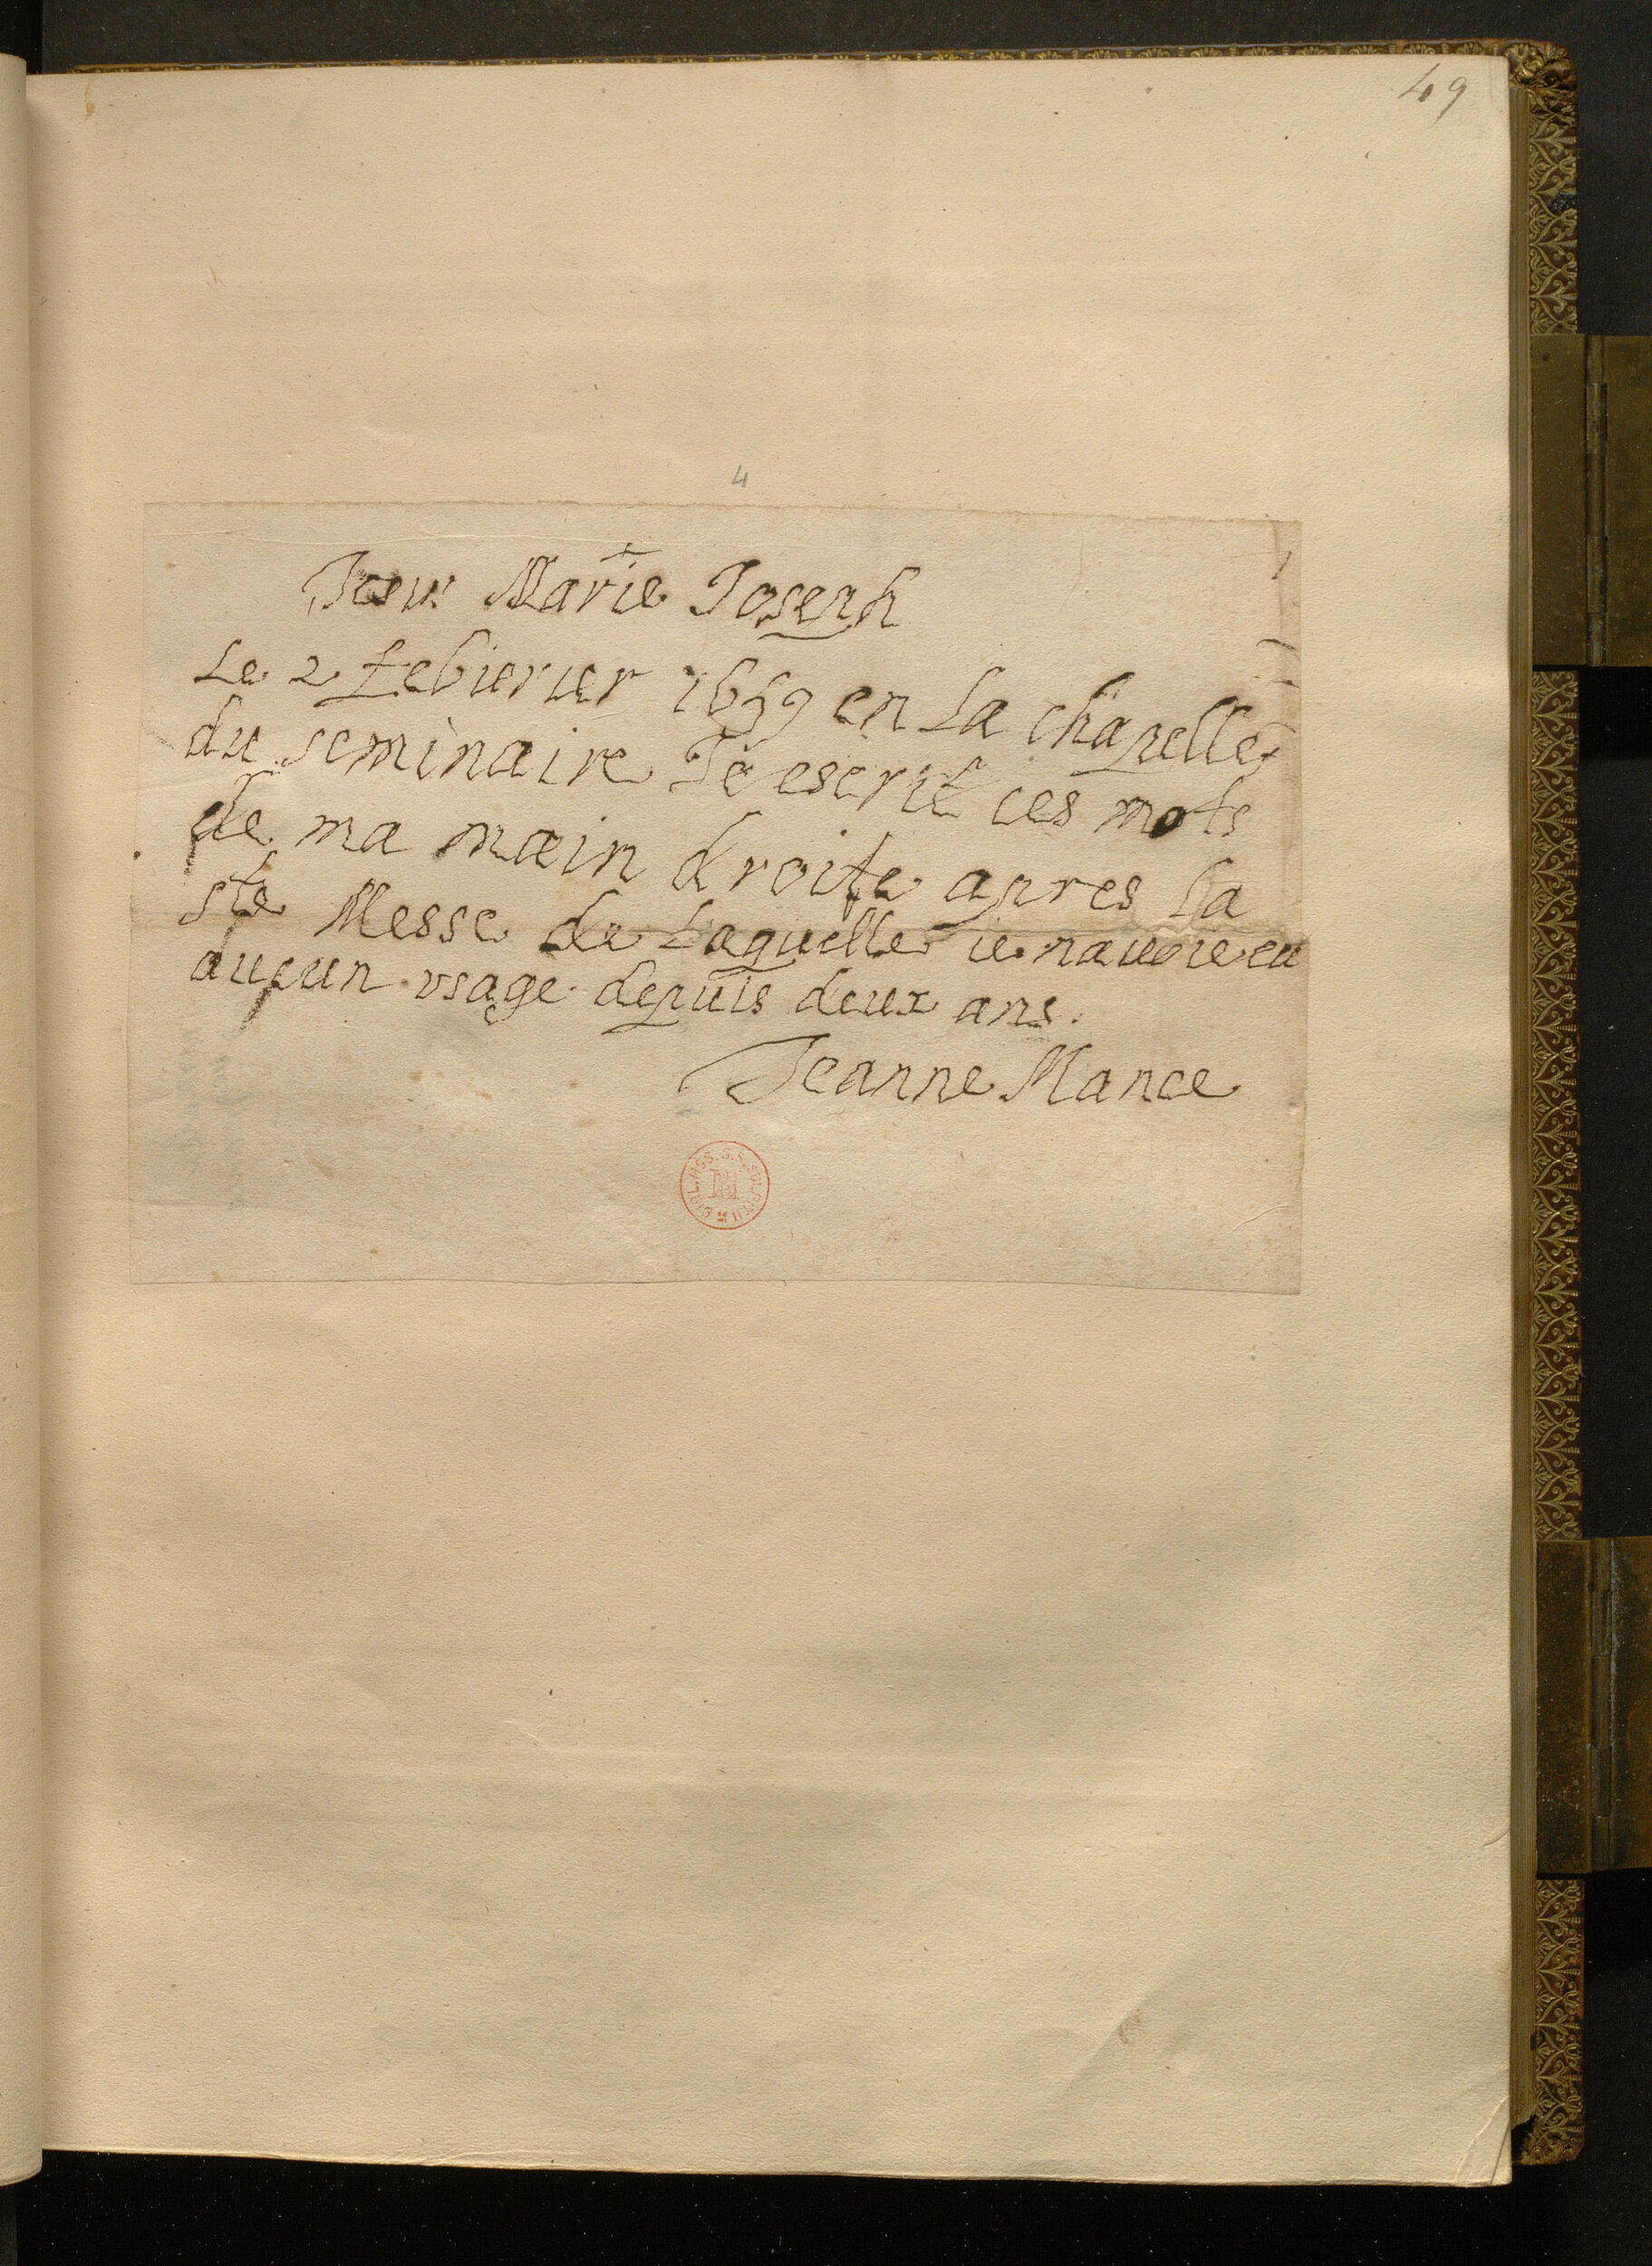 49
4
Jesus Marie Joseph
Le 2 febierier 1659 en La chapelle
du seminaire Jé escrit ces mots
de ma main droite apres La
ste Messe de Laquelle ie nauoie eu
aucun vsage depuis deux ans.
Jeanne Mance
BIBL. MSS. S. SULPITII